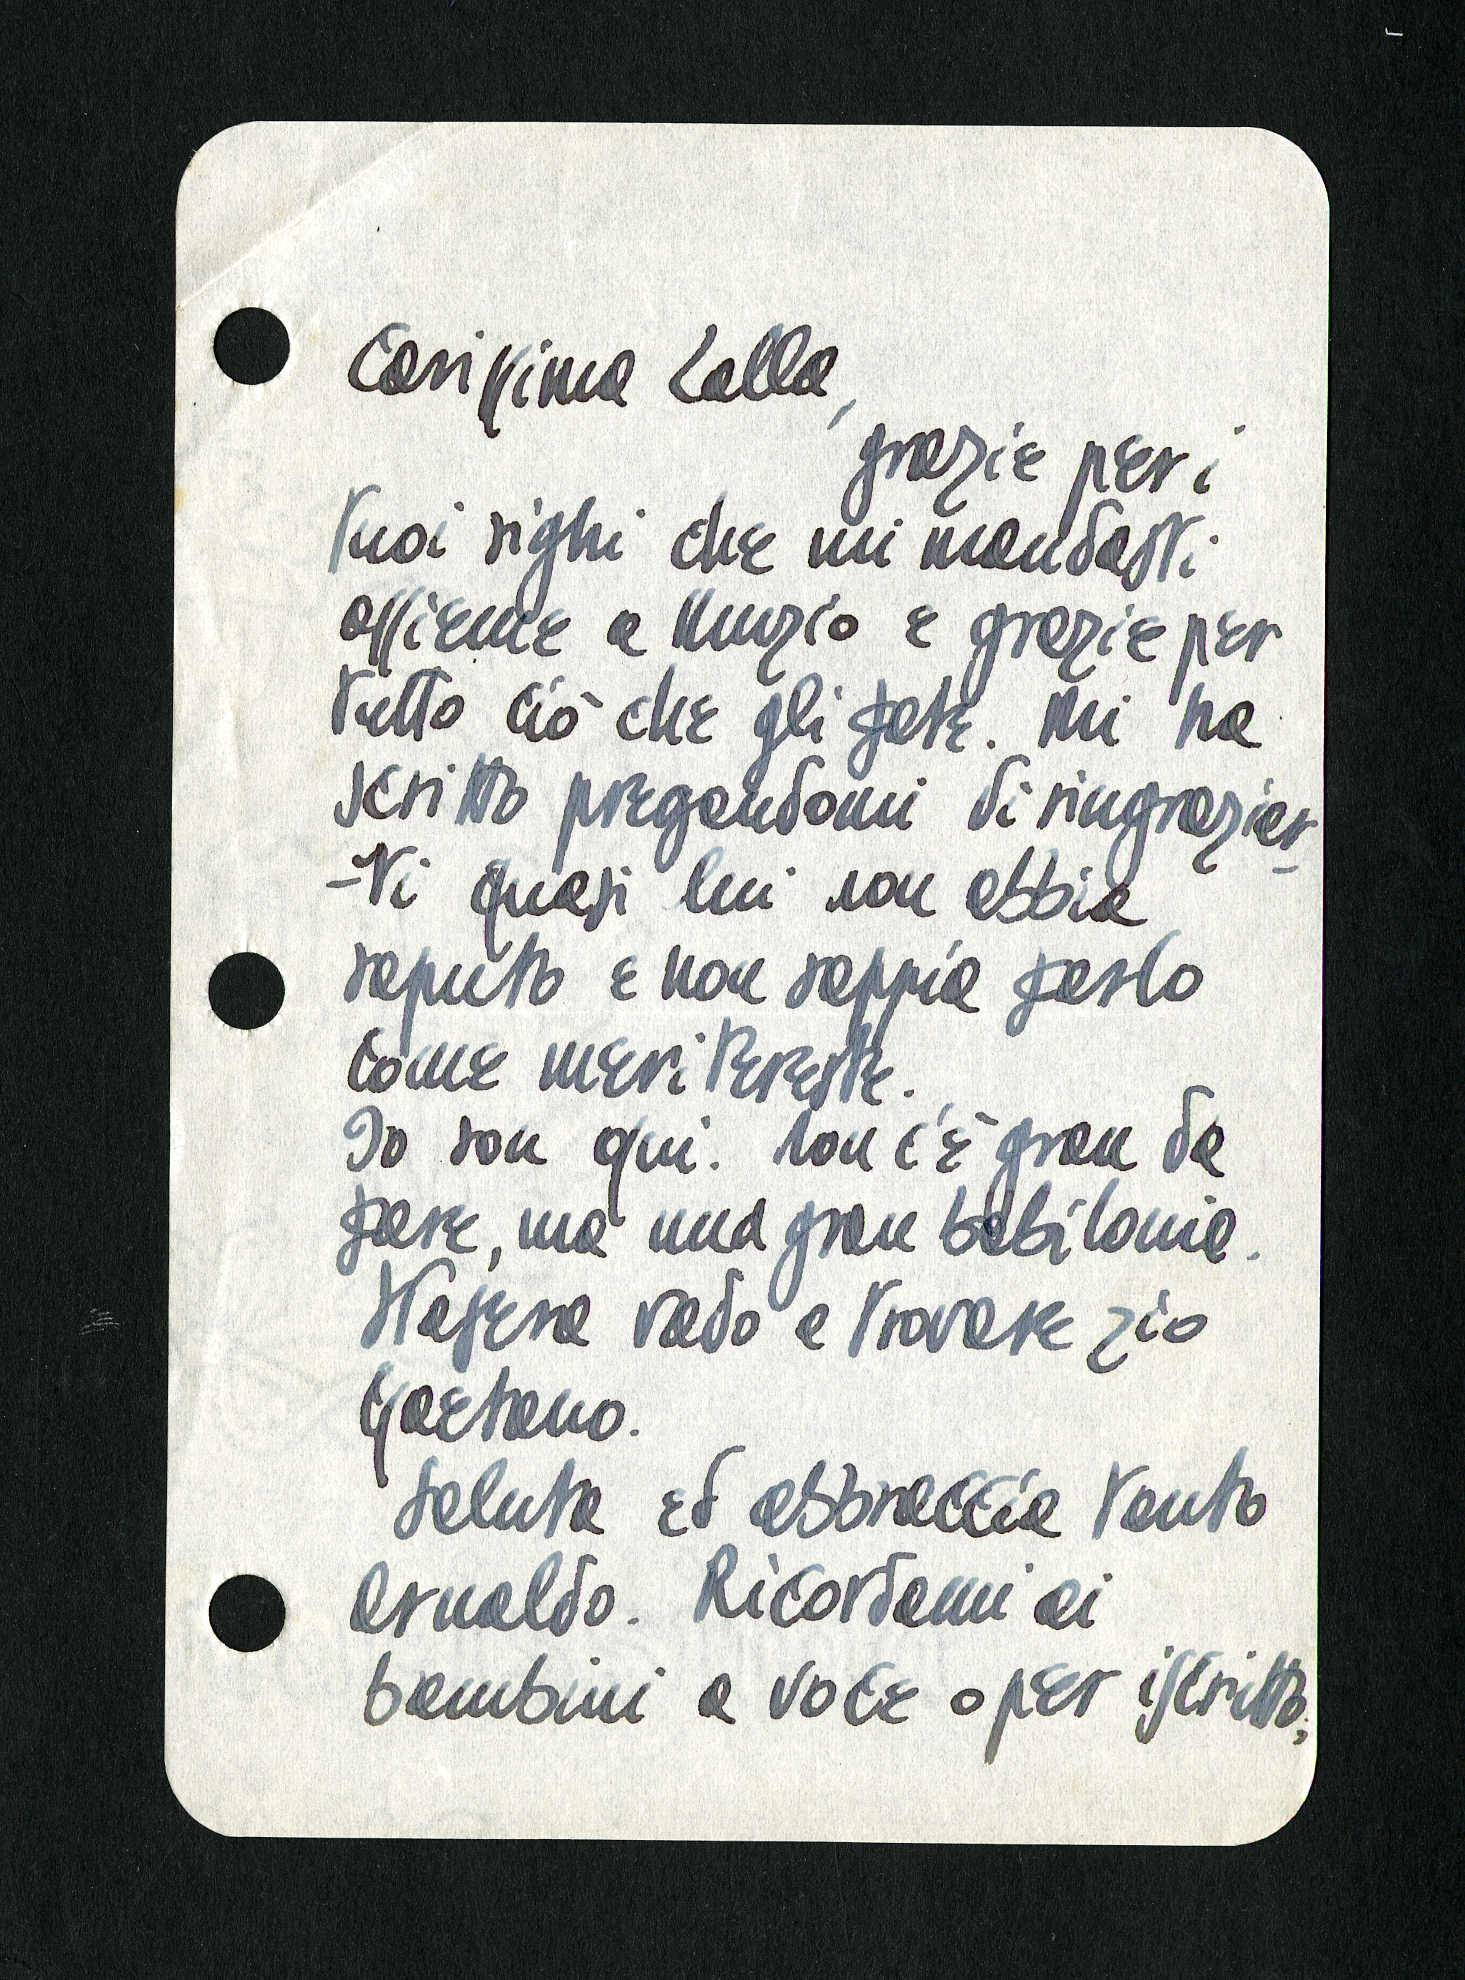 Carissima Lalla,
grazie per i
tuoi righi che mi mandasti
assieme a Nunzio e grazie per
tutto ciò che gli fate. Mi ha
scritto pregandomi di ringraziar-
-Vi quasi lui non abbia
saputo e non sappia farlo
come meritereste.
Io son qui. Non c'è gran da
fare, ma una gran babilonia.
Stasera vado a trovare zio
Gaetano.
Saluta ed abbraccia tanto
Arnaldo. Ricordami ai
bambini a voce o per iscritto;